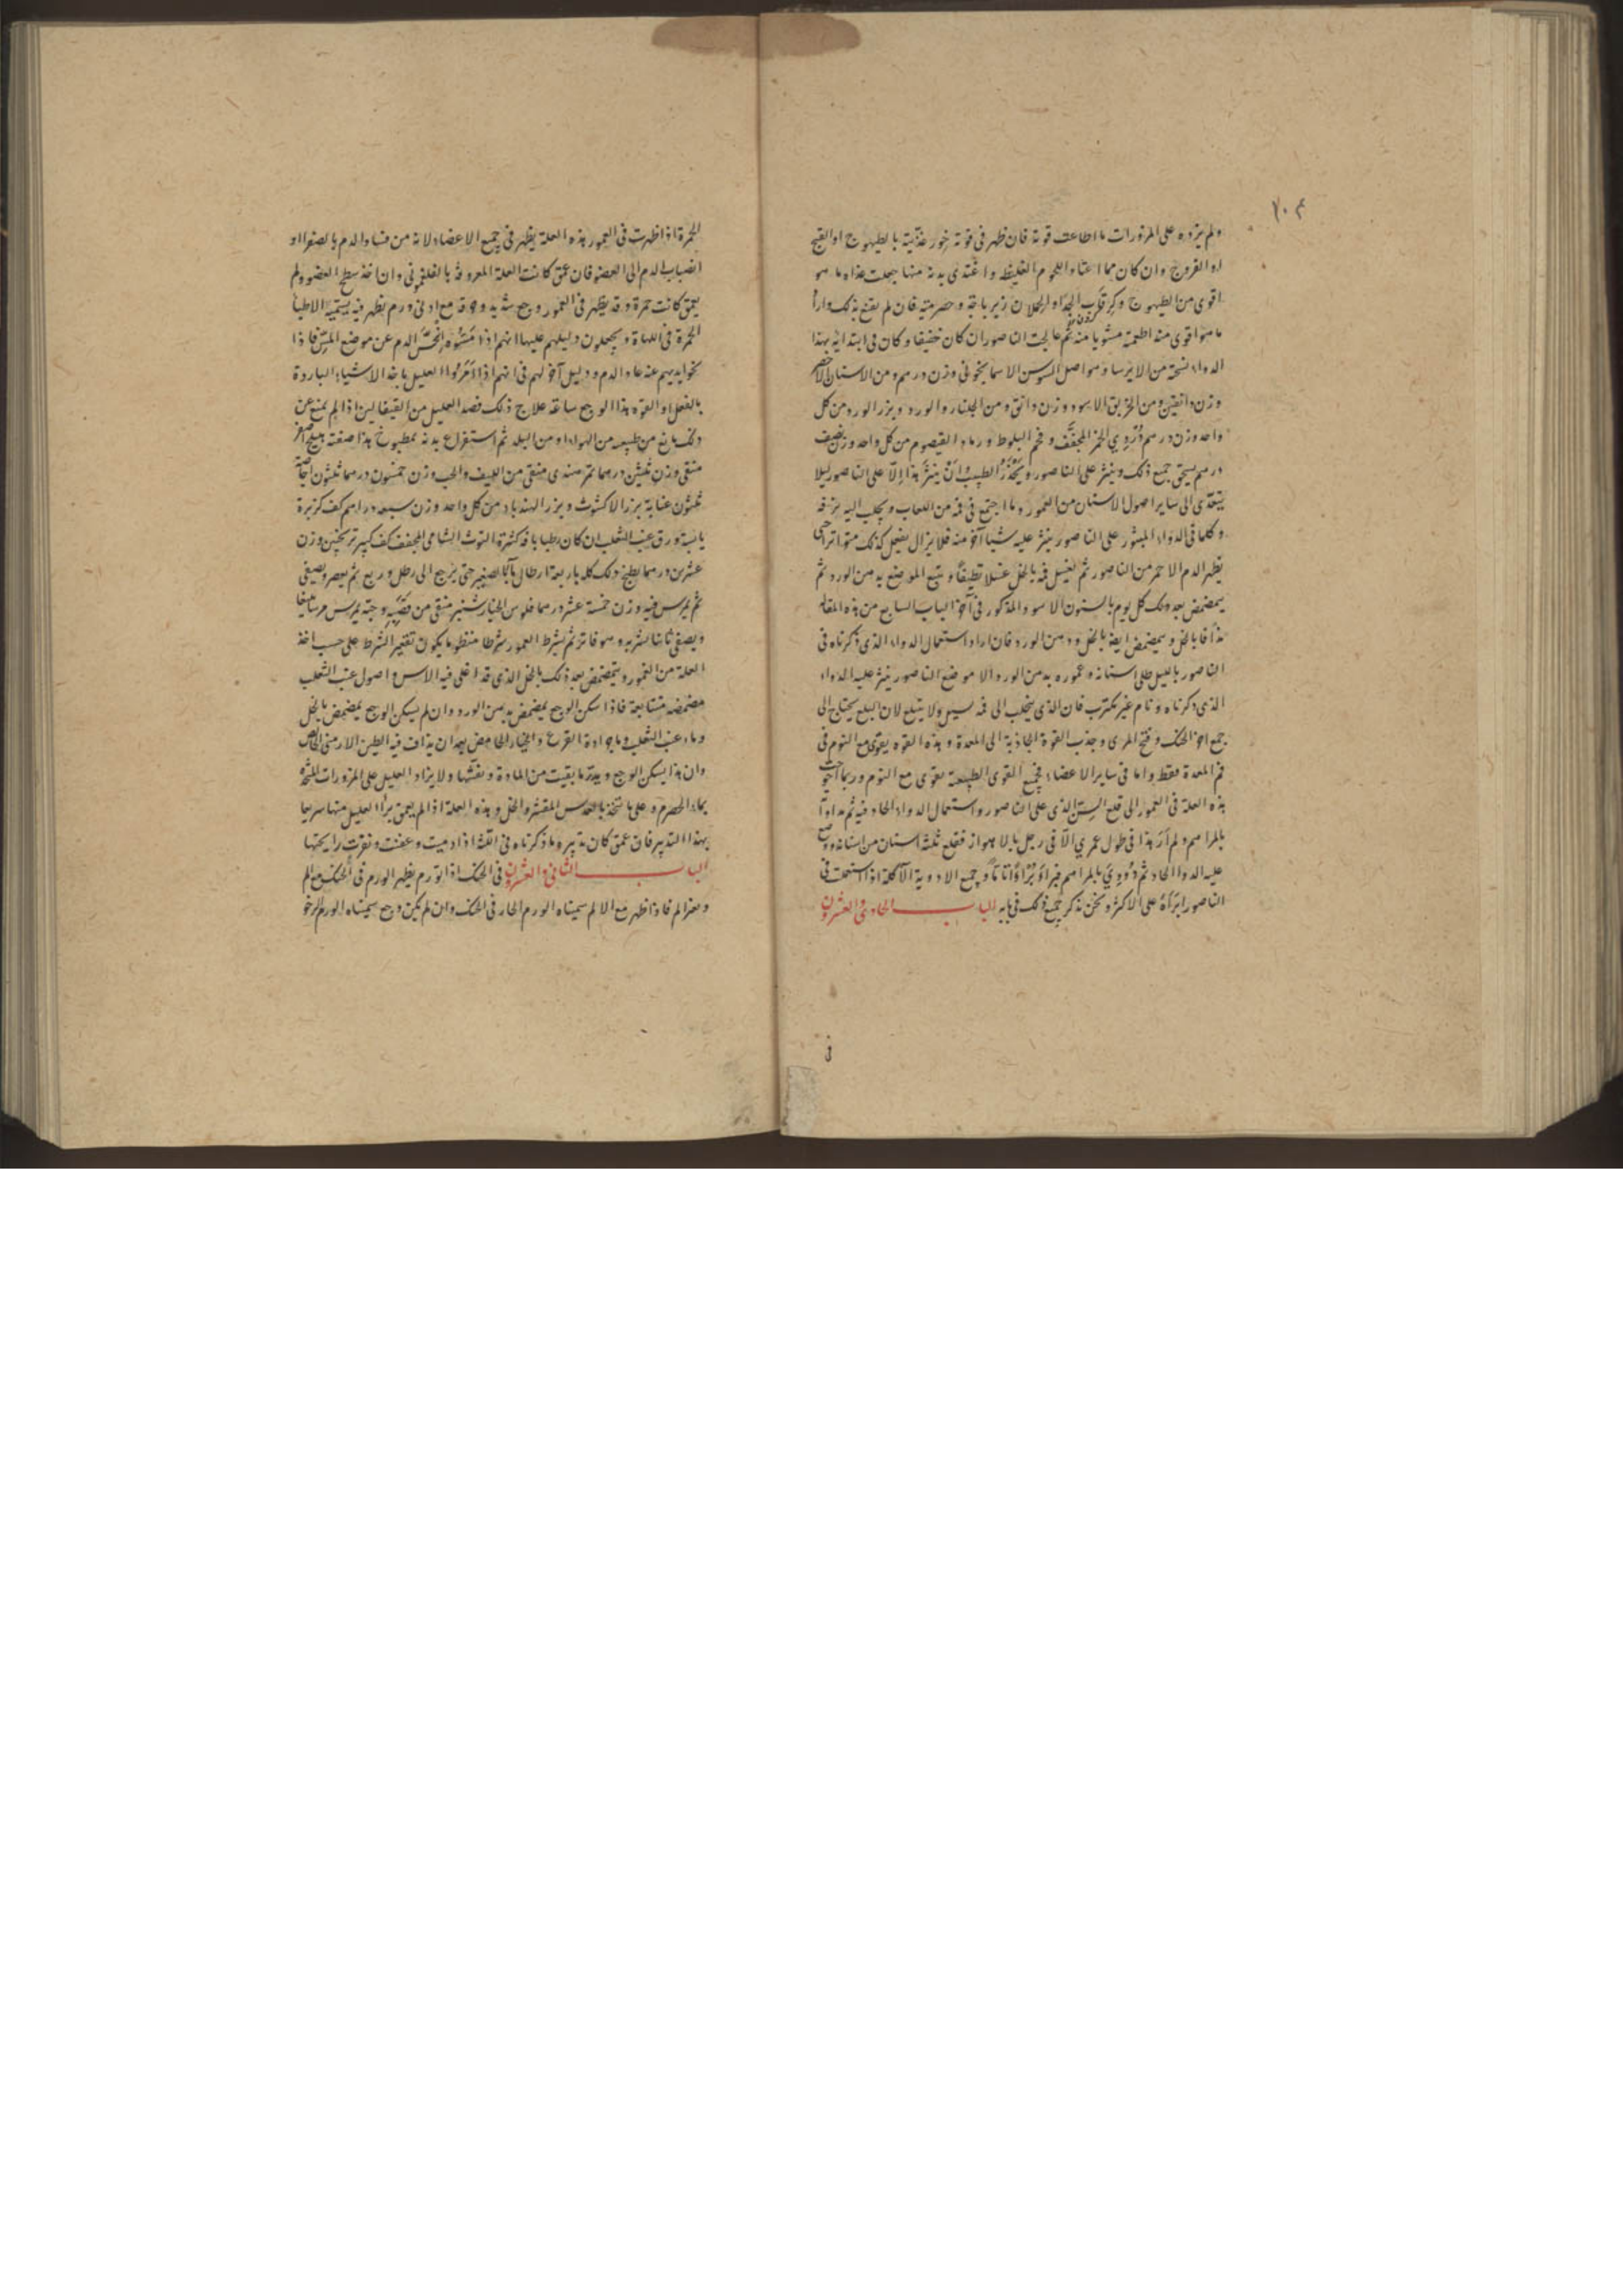 ٢٠٤
ولم يزده على المزورات ما اطاعت قوته فان ظهر فى قوته خور غذيته بالطيهوج او القبج
او الفروج وان كان مما اعتاد اللحوم الغليظه واغتذى بدنه منها جعلت غذاه ما هو
اقوى من الطيهوج وكردن الجدا والحملان زيرباجة وحصرمية فان لم يقنع بذلك واراد
ما هو اقوى منه اطعمته مشويا منه ثم عالجت الناصور ان كان خفيفا وكان فى ابتدائه بهذا
الدواء نسخته من الايرسا وهو اصل السوسن الاسمانجونى وزن درهم ومن الاسنان الاخضر
وزن دانقين ومن الخربق الاسود وزن دانق ومن الجلنار والورد وبزر الورد من كل
واحد وزن درهم دُرْدِي الخمر المجفَّف وفحم البلوط ورماد القيصوم من كل واحد وزن نصف
درهم يسحق جميع ذلك وينثر على الناصور ويُحذَّرُ الطبيب وانْ ينثرَ هذا اِلّا على الناصور ليلا
يتعدى الى ساير اصول الاسنان من العمور وما اجتمع فى فمه من اللعاب ويجلب اليه بزفه
وكلما فى الدواء المبثور على الناصور ينثر عليه شيا آخر منه فلا يزال يفعل كذلك متواترا حتى
يظهر الدم الاحمر من الناصور ثم يغسل فمه بالخل غسلا نظيفًا ويتبع الموضع بدهن الورد ثم
يتمضمض بعد ذلك كل يوم بالسنون الاسود المذكور فى آخر الباب السابع من هذه المقالة
مذافا بالخل ويتمضمض ايضا بالخل ودهن الورد فان اراد استعمال الدواء الذى ذكرناه فى
الناصور بالليل طلى اسنانه وعموره بدهن الورد الا موضع الناصور ينثر عليه الدواء
الذى ذكرناه ونام غير مكترب فان الذى يتحلب الى فمه يسيل ولا يبتلع لان البلع يحتاج الى
جمع اجزا الحنك وفتح المرى وجذب القوة الجاذبة الى المعدة وهذه القوه يقوى مع النوم فى
فم المعدة فقط واما فى ساير الاعضاء فجميع القوى الطبيعية يقوى مع النوم وربما احوجت
هذه العلة فى العمور الى قلع السنّ الذى على الناصور واستعمال الدواء الحاد فيه ثم مداواته
بالمراهم ولم اَرَ هذا فى طول عمري الّا فى رجل بالاهواز فقلع ثلثة اسنان من اسنانه ووضع
عليه الدوا الحاد ثم دُوِويَ بالمراهم فبراَ بُرْاً تامًّا وجميع الادوية الآكلة اذا استعملت فى
الناصور ابراَهُ على الاكثر ونحن نذكر جميع ذلك فى بابه الباب الحادى والعشرون
فى
الحمرة اذا ظهرت فى العمور هذه العلة يظهر فى جميع الاعضاء لانه من فساد الدم بالصفرا او
انصباب الدم الى العضو فان عمق كانت العلة المعروفة بالفلغمونى وان اخذ سطح العضو ولم
يعمق كانت حمرة وقد يظهر فى العمور وجع شديد وحرقة مع ادنى ورم يظهر فيه يسميه الاطبا
الحمرة فى اللهاة ويجعلون دليلهم عليها انهم اذا مَسُّوه انحسر الدم عن موضع المسّ فاذا
نحوا يديهم عنه عاد الدم ودليل آخر لهم فى انهم اذا اَمَرُوا العليل باخذ الاشياء الباردة
بالفعل او القوه هذا الوجع ساعة علاج ذلك فصد العليل من القيفالين اذا لم يمنع عن
ذلك مانع من طبيعه من الهواء او من البلد ثم استفراغ بدنه بمطبوخ هذا صفته هليلج اصفر
منقى وزن ثلثين درهما تمر هندى منقى من الليف والحب وزن خمسون درهما ثلثون اجاصة
ثلثون عنابة بزر الاكشوث وبزر الهندباء من كل واحد وزن سبعه دراهم كف كزبرة
يابسة ورق عنب الثعلب ان كان رطبا باقه كثيرة التوث الشامى المجفف كف كبير ترنجبين وزن
عشرين درهما يطبخ ذلك كله باربعة ارطال مآءً بالصغير حتى يرجع الى رطل وربع ثم يعصر ويصفى
ثم يمرس فيه وزن خمسة عشر درهما فلوس الخيارشنبر منقى من قصبه وحبه يمرس مرسا بليغا
ويصفى ثانيا يشربه وهو فاتر ثم يشرط العمور شرطا منظوما يكون تقتير الشرط على حسب اخذ
العلة من العمور ويتمضمض بعد ذلك بالخل الذى قد اغلى فيه الاس واصول عنب الثعلب
مضمضه متتابعة فاذا سكن الوجع يمضمض بدهن الورد وان لم يسكن الوجع يمضمض بالخل
وماء عنب الثعلب وماء جرادة القرع والخيار الحامض بعد ان يذاف فيه الطين الارمنى الخالص
وان هذا يسكن الوجع ويبدد ما بقيت من المادة ويفشها ولا يزاد العليل على المزورات المتخذه
بماء الحصرم وعلى ما تتخذ بالعدس المقشر والخل وهذه العلة اذا لم يعمق يبرأ العليل منها سريعا
بهذا التدبير فان عمق كان تدبيره ما ذكرناه فى اللثة اذا دميت وعفنت وتغيرت رايحتها
الباب الثانى والعشرون فى الحنك اذا تورم يظهر الورم فى الحنك مع الم
وبغير الم فاذا ظهر مع الالم سميناه الورم الحار فى الحنك وان لم يكن وجع سميناه الورم الرخو